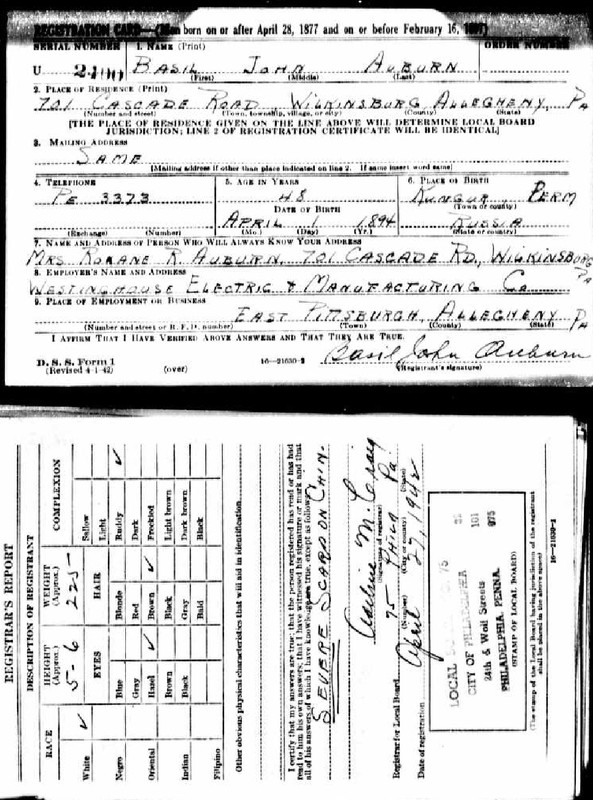 REGISTRATION CARD—(Men born on or after April 28, 1877 and on or before February 16, 1897)
SERIAL NUMBER 1. NAME (Print) ORDER NUMBER
U BASIL JOHN AUBURN
(First) (Middle) (Last)
2. PLACE OF RESIDENCE (Print)
701 CASCADE ROAD, WILKINSBURG ALLEGHENY, PA
(Number and street) (Town, township, village, or city) (County) (State)
[THE PLACE OF RESIDENCE GIVEN ON THE LINE ABOVE WILL DETERMINE LOCAL BOARD
JURISDICTION; LINE 2 OF REGISTRATION CERTIFICATE WILL BE IDENTICAL]
3. MAILING ADDRESS
SAME
[Mailing address if other than place indicated on line 2. If same insert word same]
4. TELEPHONE 5. AGE IN YEARS 6. PLACE OF BIRTH
PE 3373 48 KUNGUR PERM
DATE OF BIRTH (Town or county)
APRIL 1 1894 RUSSIA
(Exchange) (Number) (Mo.) (Day) (Yr.) (State or country)
7. NAME AND ADDRESS OF PERSON WHO WILL ALWAYS KNOW YOUR ADDRESS
MRS ROXANE R. AUBURN, 701 CASCADE RD, WILKINSBURG PA
8. EMPLOYER'S NAME AND ADDRESS
WESTINGHOUSE ELECTRIC & MANUFACTURING Co
9. PLACE OF EMPLOYMENT OR BUSINESS
EAST PITTSBURGH, ALLEGHENY PA
(Number and street or R. F. D. number) (Town) (County) (State)
I AFFIRM THAT I HAVE VERIFIED ABOVE ANSWERS AND THAT THEY ARE TRUE.
D. S. S. Form 1 16—21630-2 Basil John Auburn
(Revised 4-1-42) (over) (Registrant's signature)
REGISTRAR'S REPORT
DESCRIPTION OF REGISTRANT
RACE HEIGHT (Approx.) WEIGHT (Approx.) COMPLEXION
5-6 225
EYES HAIR
White ✓ Blue Blonde Sallow
Light
Negro Gray Red Ruddy ✓
Dark
Oriental Hazel ✓ Brown ✓ Freckled
Light brown
Indian Brown Black Dark brown
Filipino Black Gray Black
Bald
Other obvious physical characteristics that will aid in identification
I certify that my answers are true; that the person registered has read or has had
read to him his own answers; that I have witnessed his signature or mark and that
all of his answers of which I have knowledge are true, except as follows:
SEVERE SCAR ON CHIN.
(Signature of registrar)
Registrar for Local Board 75 Phila Pa
(Number) (City or county) (State)
Date of registration April 27, 1942
LOCAL
CITY OF PHILADELPHIA
24th & Wolf Streets
PHILADELPHIA, PENNA.
(STAMP OF LOCAL BOARD)
101
075
(The stamp of the Local Board having jurisdiction of the registrant
shall be placed in the above space)
16—21630-2